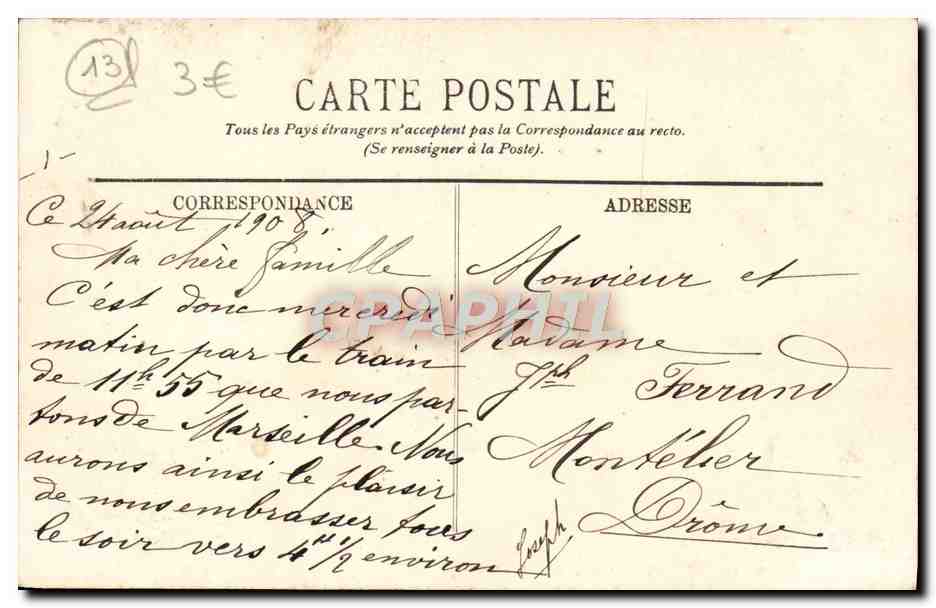 13
3€
CARTE POSTALE
Tous les Pays étrangers n'acceptent pas la Correspondance au recto.
(Se renseigner à la Poste).
-1-
CORRESPONDANCE
Ce 24 août 1908.
Ma chère famille
C'est donc mercredi
matin par le train
de 11h 55 que nous par-
tons de Marseille. Nous
aurons ainsi le plaisir
de nous embrasser tous
le soir vers 4h 1/2 environ
Joseph
ADRESSE
Monsieur et
Madame
Jph Ferrand
Montélier
Drôme
CPAPHIL